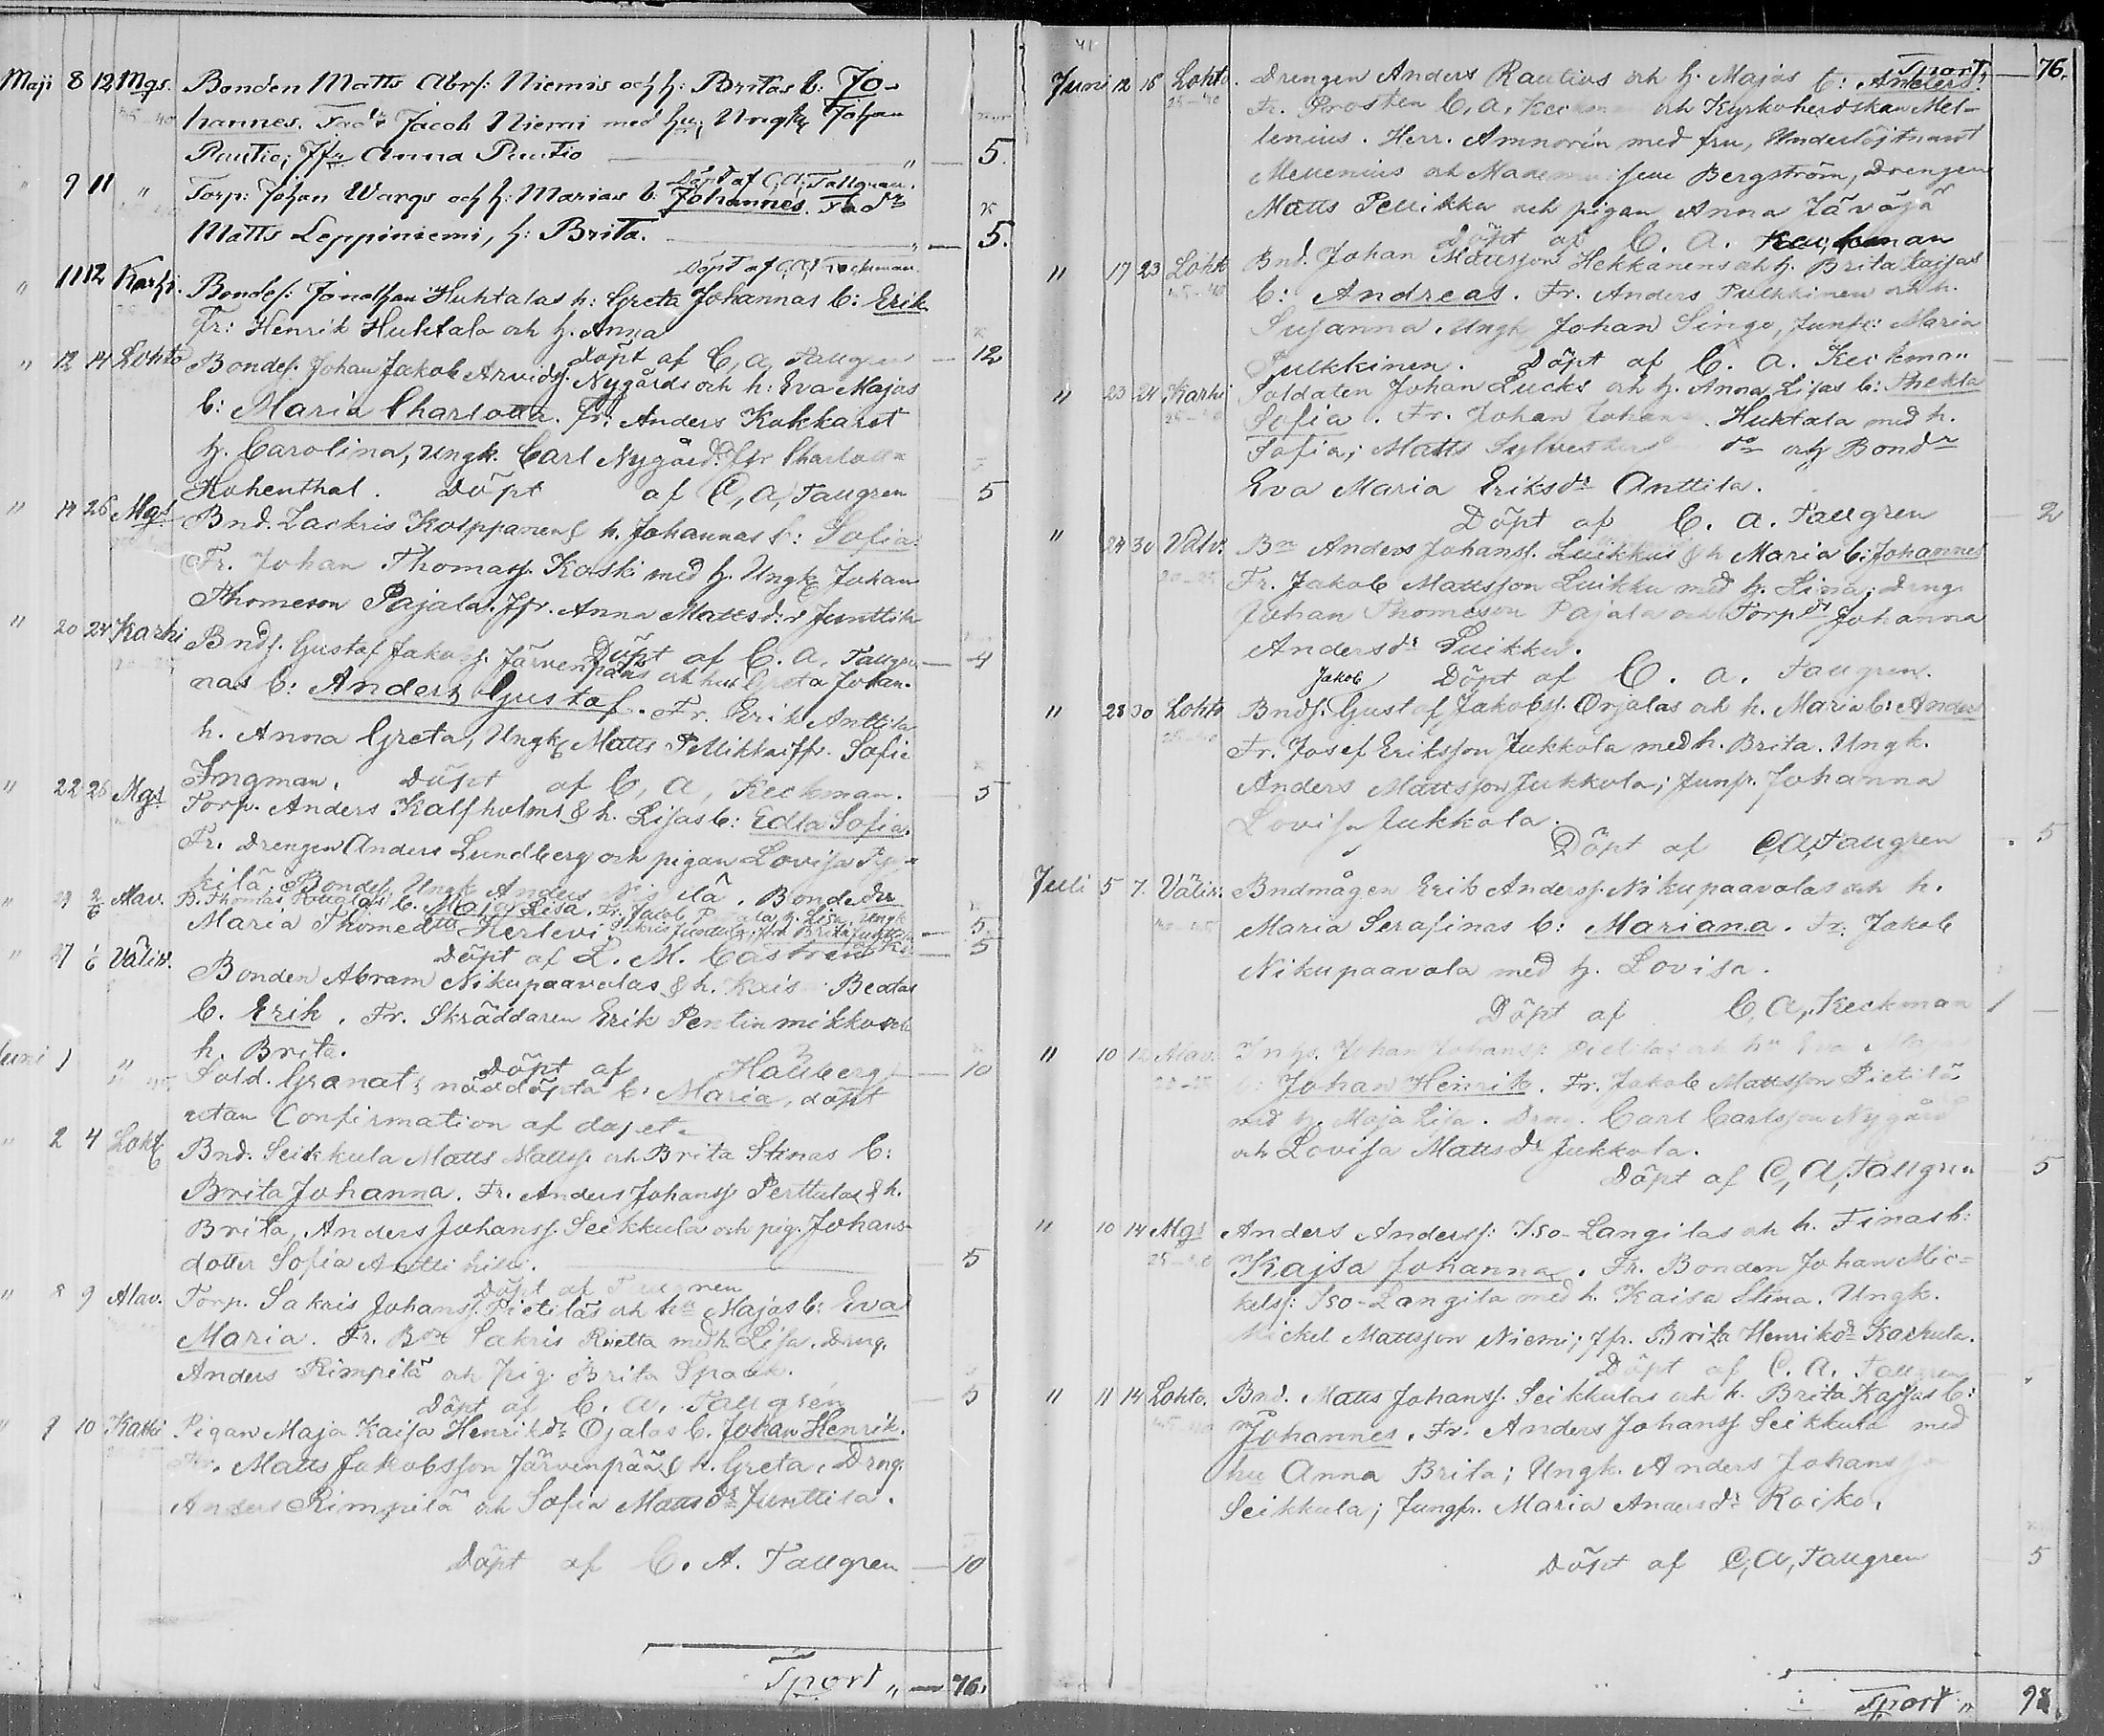 Maji 8 12 Mgs. Bonden Matts Abrs: Niemis och h: Britas b: Jo-
hannes. Fadr Jacob Niemi med hu; Ungk Johan
Rautio; Jfr Anna Rautio " — 5.
Döpt af C, A, Tallgren.
" 9 11 " Torp: Johan Wargs och h: Marias b. Johannes. Fadr
Matts Leppiniemi, h: Brita. " — 5.
Döpt af C, A, Keckman
" 11 12 Karhi. Bondes: Jonathan Huhtalas h: Greta Johannas b: Erik
Fr: Henrik Huhtala och h. Anna
döpt af C, A, Tallgren — 12
" 12 14 Lohto Bondes. Johan Jakob Arvids. Nygårds och h: Eva Majas
b: Maria Charlotta. Fr: Anders Kokkarit
h. Carolina, Ungk. Carl Nygård. Jfr Charlotta
Hohenthal. Döpt af C, A, Tallgren 5
" 14 26 Mgs Bnd. Zackris Kolppanens h. Johannas b: Sofia.
Fr. Johan Thomass. Koski med h. Ungk Johan
Thomeson Pajala. Jfr. Anna Mattsd:r Junttila
Döpt af C. A. Tallgren — 4
" 20 24 Karhi Bnds. Gustaf Jakobs. Järvenpääs och hus Greta Johan-
nas b: Anders Gustaf. Fr. Erik Anttila
h. Anna Greta, Ungk Matts Pellikka; Jfr. Sofia
Ingman. Döpt af C, A, Keckman. 5
" 22 26 Mgs Torp. Anders Kalfholms & h. Lisas b: Edla Sofia.
Fr. Drengen Anders Lundberg och pigan Lovisa
kilä. Bondes. Ungk Anders Bondedr
" 29 2/6 Alav. B. Thomas b. Maja Lisa. Fr. Jacob h. Lisa, Ungk
Maria Thomedtr Hertevi — 5
Döpt af L. M. Castrén — 5
" 27 6 Väliv. Bonden Abram Nikupaavolas & h. Kaisa Beatas
b. Erik. Fr. Skräddaren Erik Pentinmikko och
h. Brita.
Döpt af Hallberg — 10
Juni 1 " Sold. Granats nöddöpta b: Maria, döpt
utan Confirmation af dopet.
" 2 4 Loht Bnd. Seikkula Matts Mattss. och Brita Stinas b:
Brita Johanna. Fr. Anders Johanss Perttulas & h.
Brita, Anders Johanss. Seikkula och pig. Johans-
dotter Sofia Anttikilli. 5
Döpt af Tallgren
" 8 9 Alav. Torp. Sakris Johanss. Pietiläs och hu Majas b: Eva
Maria. Fr. Bdn Sakris Rietta med h Lisa. Dreng.
Anders Rimpilä och pig. Brita Spaak.
Döpt af C. A. Tallgren — 5
" 9 10 Karhi Pigan Maja Kaisa Henriksdr Ojalas b. Johan Henrik.
Fr. Matts Jakobsson Järvenpää & h. Greta, Dreng.
Anders Rimpilä och Sofia Mattsdr Junttila.
Döpt af C. A. Tallgren — 10
Tport " — 76.
41
Tport — 76.
Juni 12 18 Lohto. Drengen Anders Rautios och h. Majas b: Anders.
Fr. Prosten C. A. Keckman och Kyrkoherdskan Mel-
lenius. Herr. Amnorin med fru, Underlöjtnant
Mellenius och Bergström, Drengen
Matts Pellikka och pigan Anna Täväjä
Döpt af C. A. Keckman
" 17 23 Loht Bnd. Johan Mattsson Hekkanens och h. Brita Kajsas
b: Andreas. Fr. Anders Pulkkinen och h.
Susanna. Ungk Johan Singo, Junfr: Maria
Pulkkinen. Döpt af C. A. Keckman
" 23 24 Karhi Soldaten Johan Lucks och h. Anna Lisas b: Thekla
Sofia. Fr. Johan Johans. Huhtala med h.
Sofia; Matts Sylvester och Bondr
Eva Maria Eriksdr Anttila.
Döpt af C. A. Tallgren — 2
" 24 30 Väliv. Bn Anders Johanss. Luikkus & h Maria b: Johannes
Fr. Jakob Mattsson Luikku med h. Lina; dreng.
Johan Thomeson Pajala och Torpdr Johanna
Andersdr Luikku.
Döpt af C. A. Tallgren.
Jakob
" 28 30 Lohto Bnds. Gustaf Jakobss. Orjalas och h. Marias b: Anders
Fr. Josef Eriksson Jukkola med h. Brita. Ungk.
Anders Mattsson Jukkola; Junfr. Johanna
Lovisa Jukkola.
Döpt af C, A, Tallgren 5
Juli 5 7. Väliv. Bndmågen Erik Anderss. Nikupaavolas och h.
Maria Serafinas b: Mariana. Fr: Jakob
Nikupaavola med h. Lovisa.
Döpt af C, A, Keckman 1
" 10 Alav. Johan Johanss. Pietiläs och hu Eva
Johan Henrik. Fr. Jakob Mattsson Pietilä
med h. Maja Lisa. Dreng. Carl Carlsson Nygård
och Lovisa Mattsdr Jukkola.
Döpt af C, A, Tallgren 5
" 10 14 Mgs Anders Anderss: Iso-Langilas och h. Finas b:
Kajsa Johanna. Fr. Bonden Johan Mic-
kelss: Iso-Langila med h. Kaisa Stina. Ungk.
Mickel Mattsson Niemi; Jfr. Brita Henriksdr Karhula.
Döpt af C. A. Tallgren
" 11 14 Lohto. Bnd. Matts Johanss. Seikkulas och h. Brita Kajsas b:
Johannes. Fr. Anders Johanss Seikkula med
hu Anna Brita; Ungk. Anders Johansson
Seikkula; Jungfr. Maria Andersdr Roiko.
Döpt af C, A, Tallgren 5
Tport "